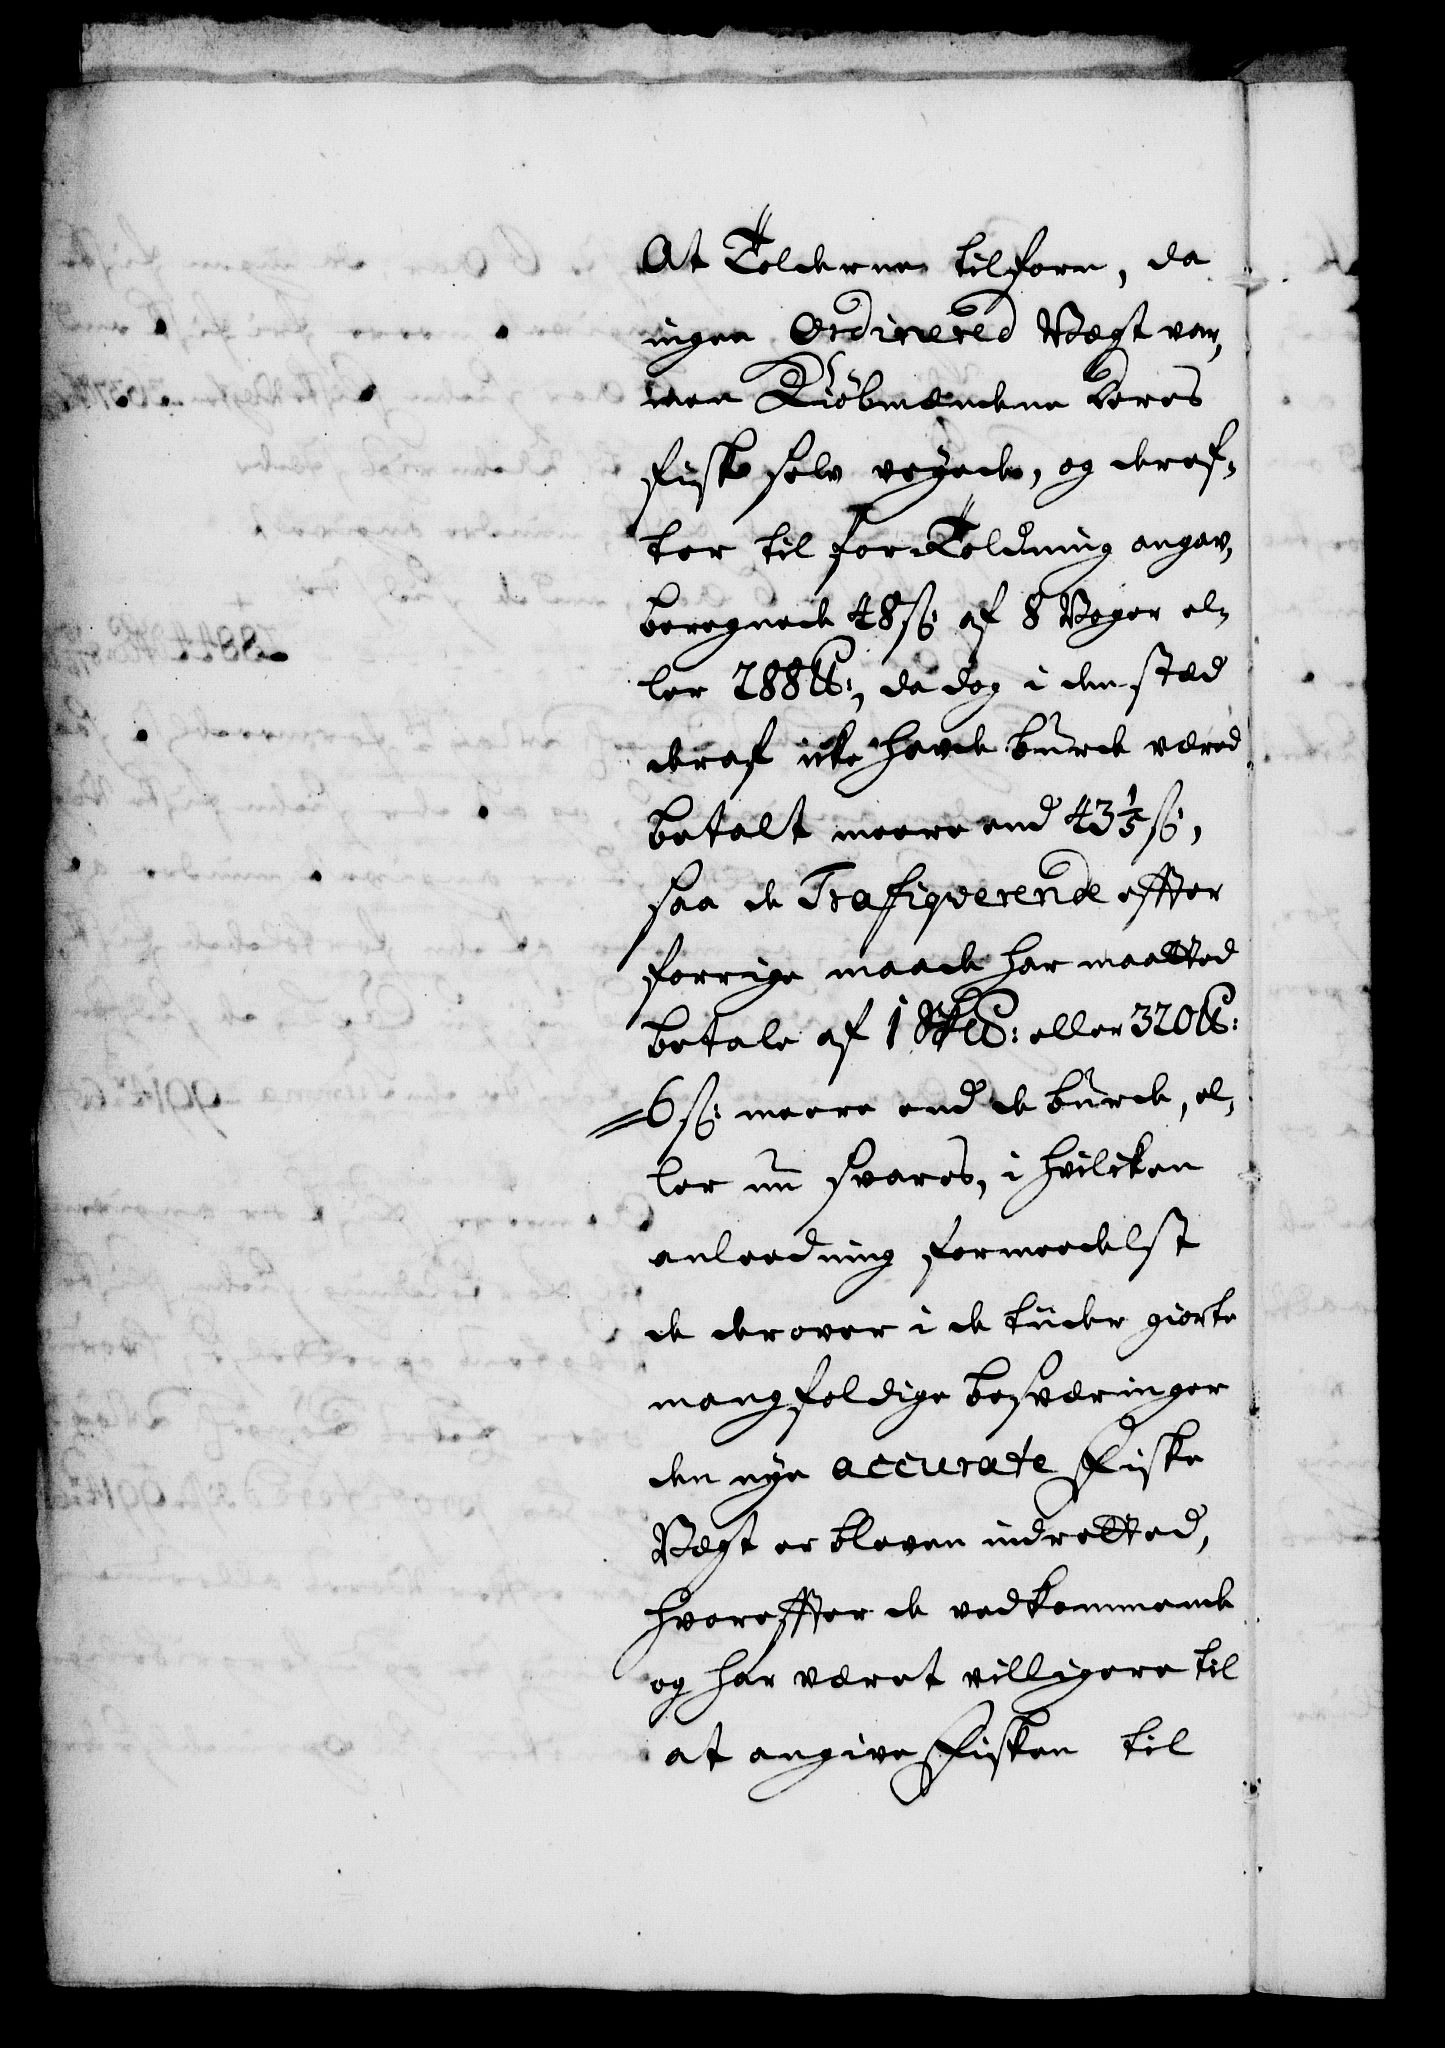 At Tolderne tilforn, da
ingen Ordinered Vægt var,
men Kiöbmændene deres
fisk selv veyede, og deref-
ter til forToldning angav,
beregnede 48 ß: af 8 Voger el-
ler 288 ℔:, da dog i den stæd
deraf icke hafde burde været
betalt meere end 43 1/5 ß,
saa de Trafiqverende effter
forrige maade har maatted
betale af 1 Sk℔: eller 320 ℔:
6 ß: meere end de burde, el-
ler nu svares, i hvilcken
anleedning formeedelst
de derover i de tiider giorte
mangfoldige besværinger
den nye accurate Fiske
Vægt er bleven indretted,
hvoreffter de vedkommende
og har været villigere til
at angive Fisken til